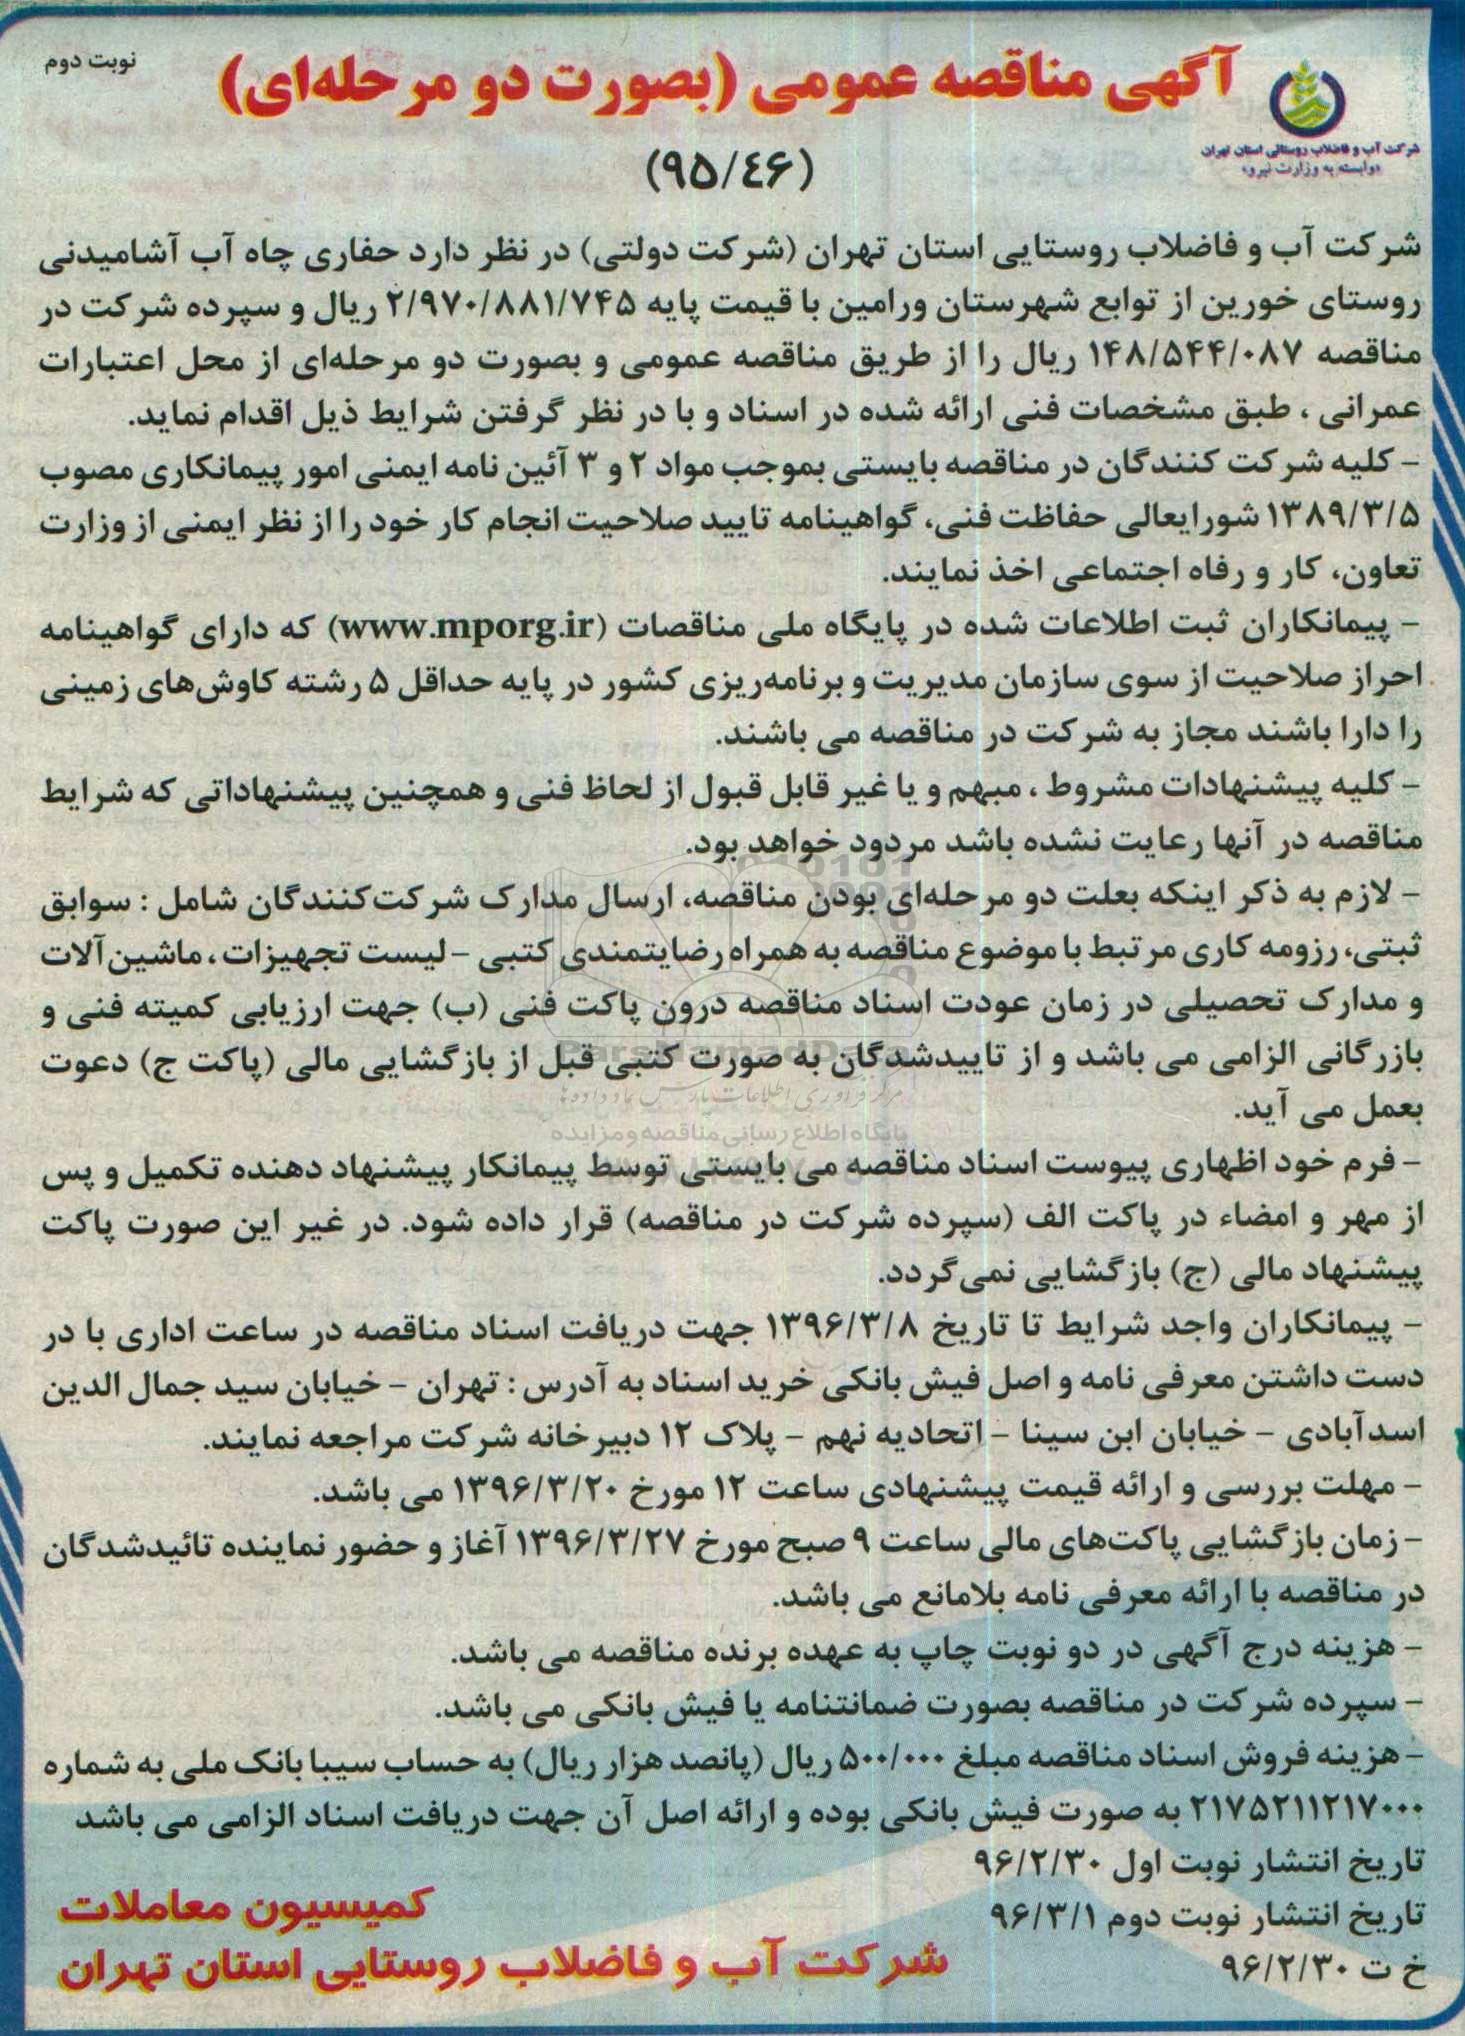 نوبت دوم
آگهی مناقصه عمومی (بصورت دو مرحله‌ای)
شرکت آب و فاضلاب روستائی استان تهران
«وابسته به وزارت نیرو»
(۹۵/۴۶)
شرکت آب و فاضلاب روستایی استان تهران (شرکت دولتی) در نظر دارد حفاری چاه آب آشامیدنی
روستای خورین از توابع شهرستان ورامین با قیمت پایه ۲/۹۷۰/۸۸۱/۷۴۵ ریال و سپرده شرکت در
مناقصه ۱۴۸/۵۴۴/۰۸۷ ریال را از طریق مناقصه عمومی و بصورت دو مرحله‌ای از محل اعتبارات
عمرانی ، طبق مشخصات فنی ارائه شده در اسناد و با در نظر گرفتن شرایط ذیل اقدام نماید.
- کلیه شرکت کنندگان در مناقصه بایستی بموجب مواد ۲ و ۳ آئین نامه ایمنی امور پیمانکاری مصوب
۱۳۸۹/۳/۵ شورایعالی حفاظت فنی، گواهینامه تایید صلاحیت انجام کار خود را از نظر ایمنی از وزارت
تعاون، کار و رفاه اجتماعی اخذ نمایند.
- پیمانکاران ثبت اطلاعات شده در پایگاه ملی مناقصات (www.mporg.ir) که دارای گواهینامه
احراز صلاحیت از سوی سازمان مدیریت و برنامه‌ریزی کشور در پایه حداقل ۵ رشته کاوش‌های زمینی
را دارا باشند مجاز به شرکت در مناقصه می باشند.
- کلیه پیشنهادات مشروط ، مبهم و یا غیر قابل قبول از لحاظ فنی و همچنین پیشنهاداتی که شرایط
مناقصه در آنها رعایت نشده باشد مردود خواهد بود.
- لازم به ذکر اینکه بعلت دو مرحله‌ای بودن مناقصه، ارسال مدارک شرکت‌کنندگان شامل : سوابق
ثبتی، رزومه کاری مرتبط با موضوع مناقصه به همراه رضایتمندی کتبی - لیست تجهیزات ، ماشین‌آلات
و مدارک تحصیلی در زمان عودت اسناد مناقصه درون پاکت فنی (ب) جهت ارزیابی کمیته فنی و
بازرگانی الزامی می باشد و از تاییدشدگان به صورت کتبی قبل از بازگشایی مالی (پاکت ج) دعوت
بعمل می آید.
ParsNamadData
مرکز فرآوری اطلاعات پارس نماد داده ها
پایگاه اطلاع رسانی مناقصه و مزایده
- فرم خود اظهاری پیوست اسناد مناقصه می بایستی توسط پیمانکار پیشنهاد دهنده تکمیل و پس
از مهر و امضاء در پاکت الف (سپرده شرکت در مناقصه) قرار داده شود. در غیر این صورت پاکت
پیشنهاد مالی (ج) بازگشایی نمی‌گردد.
- پیمانکاران واجد شرایط تا تاریخ ۱۳۹۶/۳/۸ جهت دریافت اسناد مناقصه در ساعت اداری با در
دست داشتن معرفی نامه و اصل فیش بانکی خرید اسناد به آدرس : تهران - خیابان سید جمال الدین
اسدآبادی - خیابان ابن سینا - اتحادیه نهم - پلاک ۱۲ دبیرخانه شرکت مراجعه نمایند.
- مهلت بررسی و ارائه قیمت پیشنهادی ساعت ۱۲ مورخ ۱۳۹۶/۳/۲۰ می باشد.
- زمان بازگشایی پاکت‌های مالی ساعت ۹ صبح مورخ ۱۳۹۶/۳/۲۷ آغاز و حضور نماینده تائیدشدگان
در مناقصه با ارائه معرفی نامه بلامانع می باشد.
- هزینه درج آگهی در دو نوبت چاپ به عهده برنده مناقصه می باشد.
- سپرده شرکت در مناقصه بصورت ضمانتنامه یا فیش بانکی می باشد.
- هزینه فروش اسناد مناقصه مبلغ ۵۰۰/۰۰۰ ریال (پانصد هزار ریال) به حساب سیبا بانک ملی به شماره
۲۱۷۵۲۱۱۲۱۷۰۰۰ به صورت فیش بانکی بوده و ارائه اصل آن جهت دریافت اسناد الزامی می باشد
تاریخ انتشار نوبت اول ۹۶/۲/۳۰
تاریخ انتشار نوبت دوم ۹۶/۳/۱
خ ت ۹۶/۲/۳۰
کمیسیون معاملات
شرکت آب و فاضلاب روستایی استان تهران